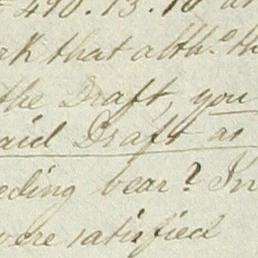 490.13.10 at
that altho' th
the Draft, you
said Draft as
eding bear? In
were satisfied